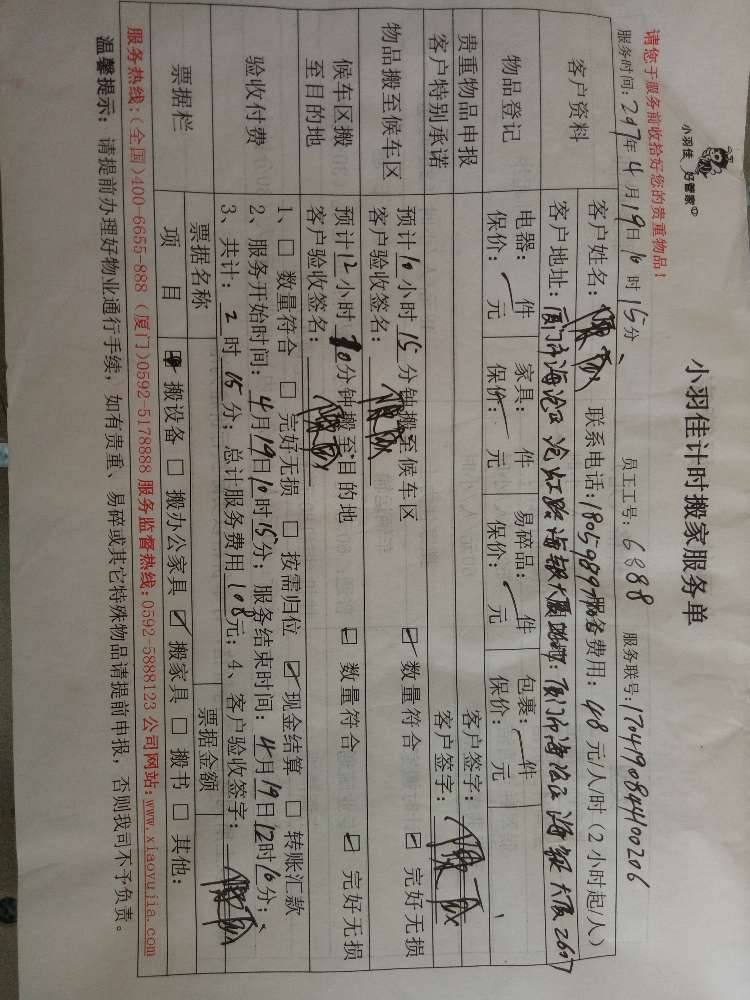 小羽佳 好管家
小羽佳计时搬家服务单
请您于服务前收拾好您的贵重物品！
员工工号：6888 服务联号：17041908441400206
服务时间：2017年4月19日10时15分
客户资料
客户姓名： 联系电话： 服务费用：48元/人/时（2小时起/人）
客户地址：厦门市海沧区
物品登记
电器： 件 家具： 件 易碎品： 件 包裹： 件
保价： 元 保价： 元 保价： 元 保价： 元
贵重物品申报 客户签字：
客户特别承诺 客户签字：
物品搬至候车区
预计10小时15分钟搬至候车区 ☑ 数量符合 ☑ 完好无损
客户验收签名：
候车区搬至目的地
预计12小时10分钟搬至目的地 ☑ 数量符合 ☑ 完好无损
客户验收签名：
验收付费
1、□ 数量符合 □ 完好无损 □ 按需归位 ☑ 现金结算 □ 转账汇款
2、服务开始时间：4月19日10时15分；服务结束时间：4月19日12时10分；
3、共计：2时15分；总计服务费用108元；4、客户验收签字：
票据栏
票据名称 票据金额
项目 搬设备 □ 搬办公家具 ☑ 搬家具 □ 搬书 □ 其他：
服务热线：（全国）400-6655-888（厦门）0592-5178888 服务监督热线：0592-5888123 公司网站：www.xiaoyujia.com
温馨提示：请提前办理好物业通行手续，如有贵重、易碎或其它特殊物品请提前申报，否则我司不予负责。